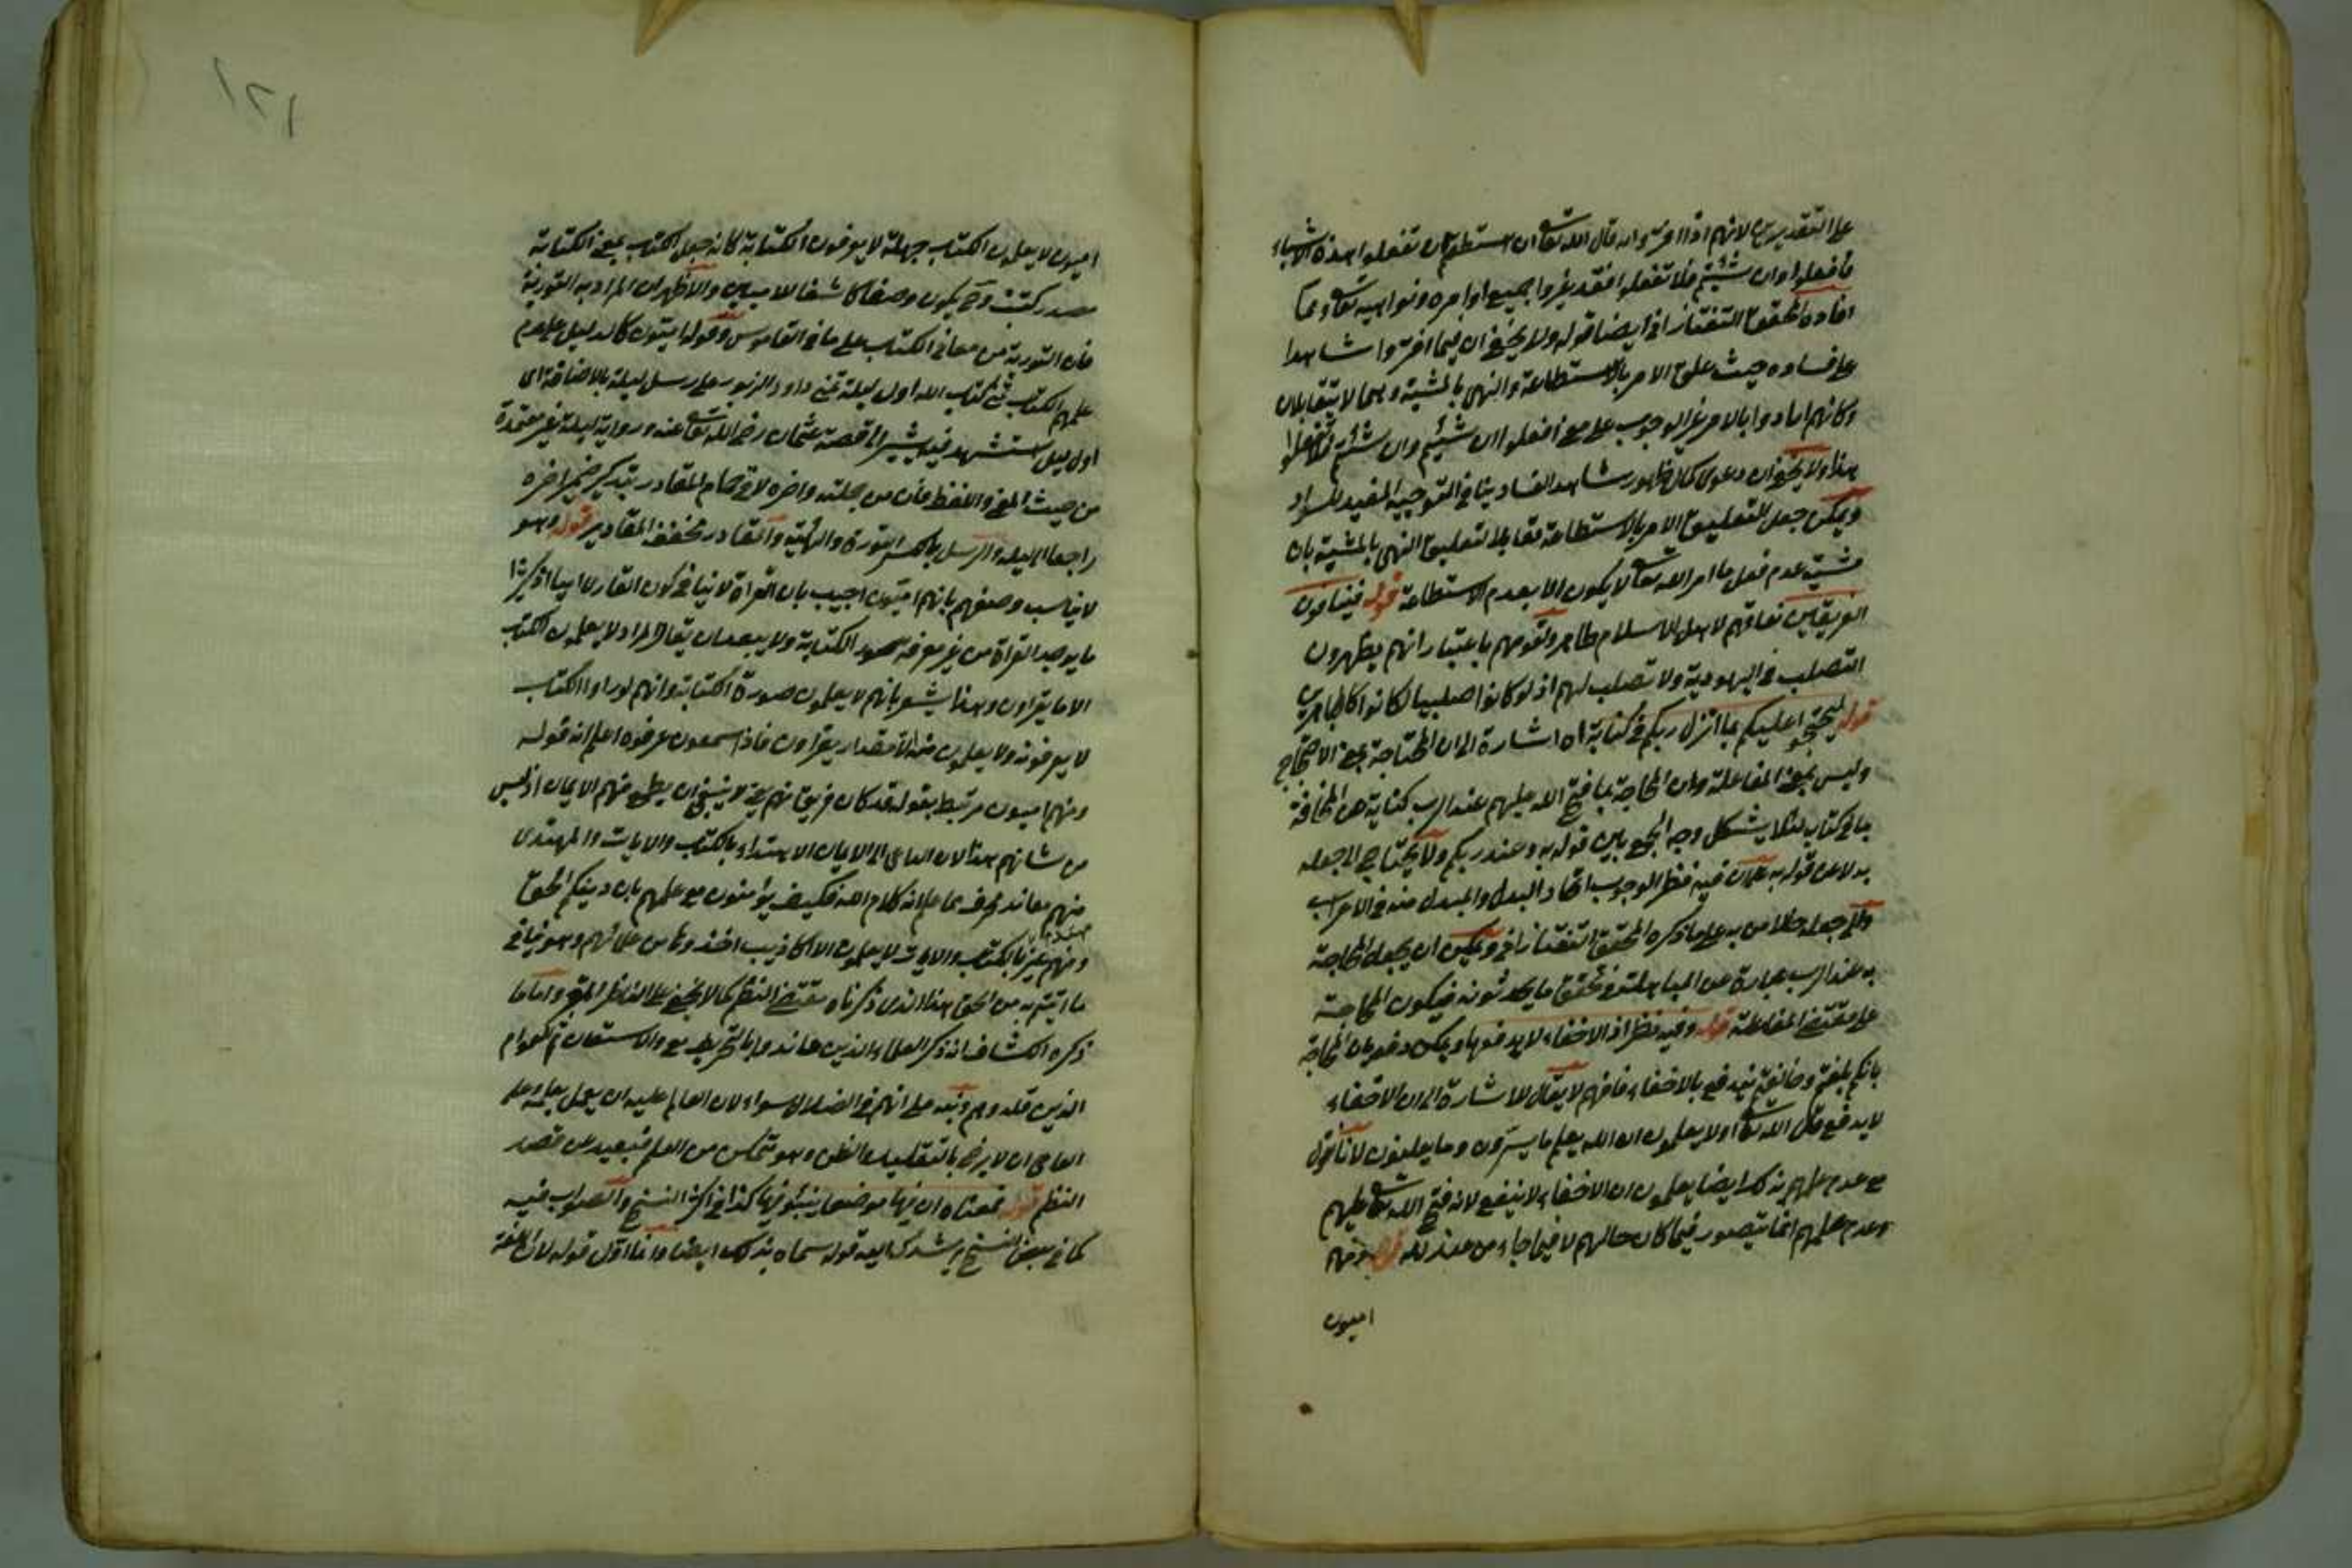 على التقديرين لانهم اذا افتروا انه قال الله تعا ان استطعتم ان تفعلوا هذه الاشياء
فافعلوا وان شئتم فلا تفعلوا فقد غيروا جميع اوامره ونواهيه تعا ومما
افاده المحقق التفتازاني ايضا قوله ولا يخفى ان فيما افتروا شاهدا
على فساده حيث علق الامر بالاستطاعة والنهي بالمشية وهما لا يتقابلان
وكانهم ارادوا بالامر غير الوجوب على معنى افعلوا ان شئتم وان شئتم فلا تفعلوا
هذا ولا يخفى ان دعوى كمال ظهور شاهد الفساد ينافي التوجيه المفيد للسداد
ويمكن جعل التعليق الامر بالاستطاعة مقابلا لتعليق النهي بالمشية بان
مشية عدم فعل ما امر الله تعا لا يكون الا بعدم الاستطاعة قوله فينافون
الفريقين نفاقهم لاهل الاسلام ظاهر ولقومهم باعتبار انهم يظهرون
التصلب في اليهودية ولا تصلب لهم اذ لو كانوا صلبيا لكانوا كالمجاهرين
قوله ليحتجوا عليكم بما انزل ربكم في كتابه اه اشارة الى ان المحاجة بمعنى الاحتجاج
وليس بمعنى المفاعلة وان المحاجة بما فتح الله عليهم عند الرب كناية عن المحاجة
بما في كتاب لئلا يشكل وجه الجمع بين قوله به وعند ربكم ولا يحتاج الى جعله
بدلا عن قوله به على ان فيه نظر الوجوب اتحاد البدل والمبدل منه في الاعراب
والى جعله حالا من به على ما ذكره المحقق التفتازاني ويمكن ان يجعل المحاجة
به عند الرب عبارة عن المباهلة في تحقق ما يحدثونه فيكون المحاجة
على مقتضى المفاعلة قوله وفيه نظر اذ الاخفاء لا يدفعها ويمكن دفعه بان المحاجة
بانكم بلغتم وخالفتم يندفع بالاخفاء فافهم لا يقال للاشارة الى ان الاخفاء
لا يدفع قال الله تعا اولا يعلمون ان الله يعلم ما يسرون وما يعلنون لانا نقول
مع عدم علمهم بذلك ايضا يعلمون ان الاخفاء لا ينفع لانه فتح الله تعا عليهم
وعدم علمهم انما يتصور فيما كان حالهم لا فيما جاء من عند الله قوله ومنهم
اميون
اميون لا يعلمون الكتاب جهلة لا يعرفون الكتابة كانه جعل الكتاب بمعنى الكتابة
مصدر كتب وح يكون وصفا كاشفا للاميين والاظهر ان المراد به التورية
فان التورية من معاني الكتاب على ما في القاموس وقوله اميون كالدليل على عدم
علمهم الكتاب تمنى كتاب الله اول ليله تمني داود الزبور على رسل ليلة بالاضافة اى
اول ليل استشهد فيه يشير الى قصة عثمان رضى الله تعا عنه ورواية ليلة غير معتمدة
من حيث المعنى واللفظ فان من جملته واخره لاقى حمام المقادر بتذكير ضمير اخره
راجعا الى ليله والرسل بالكسر التؤدة والهينة والمقادر مخفف المقادير قوله وهو
لا يناسب وصفهم بانهم اميون اجيب بان القراة لا ينافي كون القارى اميا اذ كثيرا
ما يوجد القراة من غير معرفة صور الكتابة ولا يبعد ان يقال المراد لا يعلمون الكتاب
الا ما يقراون وهذا يشعر بانهم لا يعلمون صورة الكتابة وانهم لو راوا الكتاب
لا يعرفونه ولا يعلمون منه الا مقدار يقراون فاذا سمعون عرفوه اعلم انه قوله
ومنهم اميون مرتبط بقوله قد كان فريق منهم يعني لا ينبغي ان يطمع منهم الايمان اذ ليس
من شانهم هذا لان الداعى الى الايمان الاهتداء بالكتاب والايات والمهتدى
منهم معاند محرف عما علم انه كلام الله فكيف يؤمنون مع علمهم بان دينكم الحق
ومنهم بالكتاب والايات لا يعلمون الا اكاذيب اخذوها من علمائهم وهو ينافي
ما اتيتم به من الحق هذا الذى ذكرناه مقتضى النظم كما لا يخفى على الناظر المتقي واما ما
ذكره الكشاف انه ذكر العلماء الذين عاندوا بالتحريف مع والاستيقان ثم العوام
الذين قلدوهم ونبه على انهم في الضلال سواء لان العالم عليه ان يعمل بعلمه وعلى
العامى ان لا يرضى بالتقليد والظن وهو متمكن من العلم فبعيد عن قصد
النظم قوله فمعناه ان فيها موضعا يتبوء فيها كذا في اكثر النسخ والصواب فيه
كما في بعض النسخ يرشدك اليه قوله سماه بذلك ايضا وانما اول قوله لان اللغة